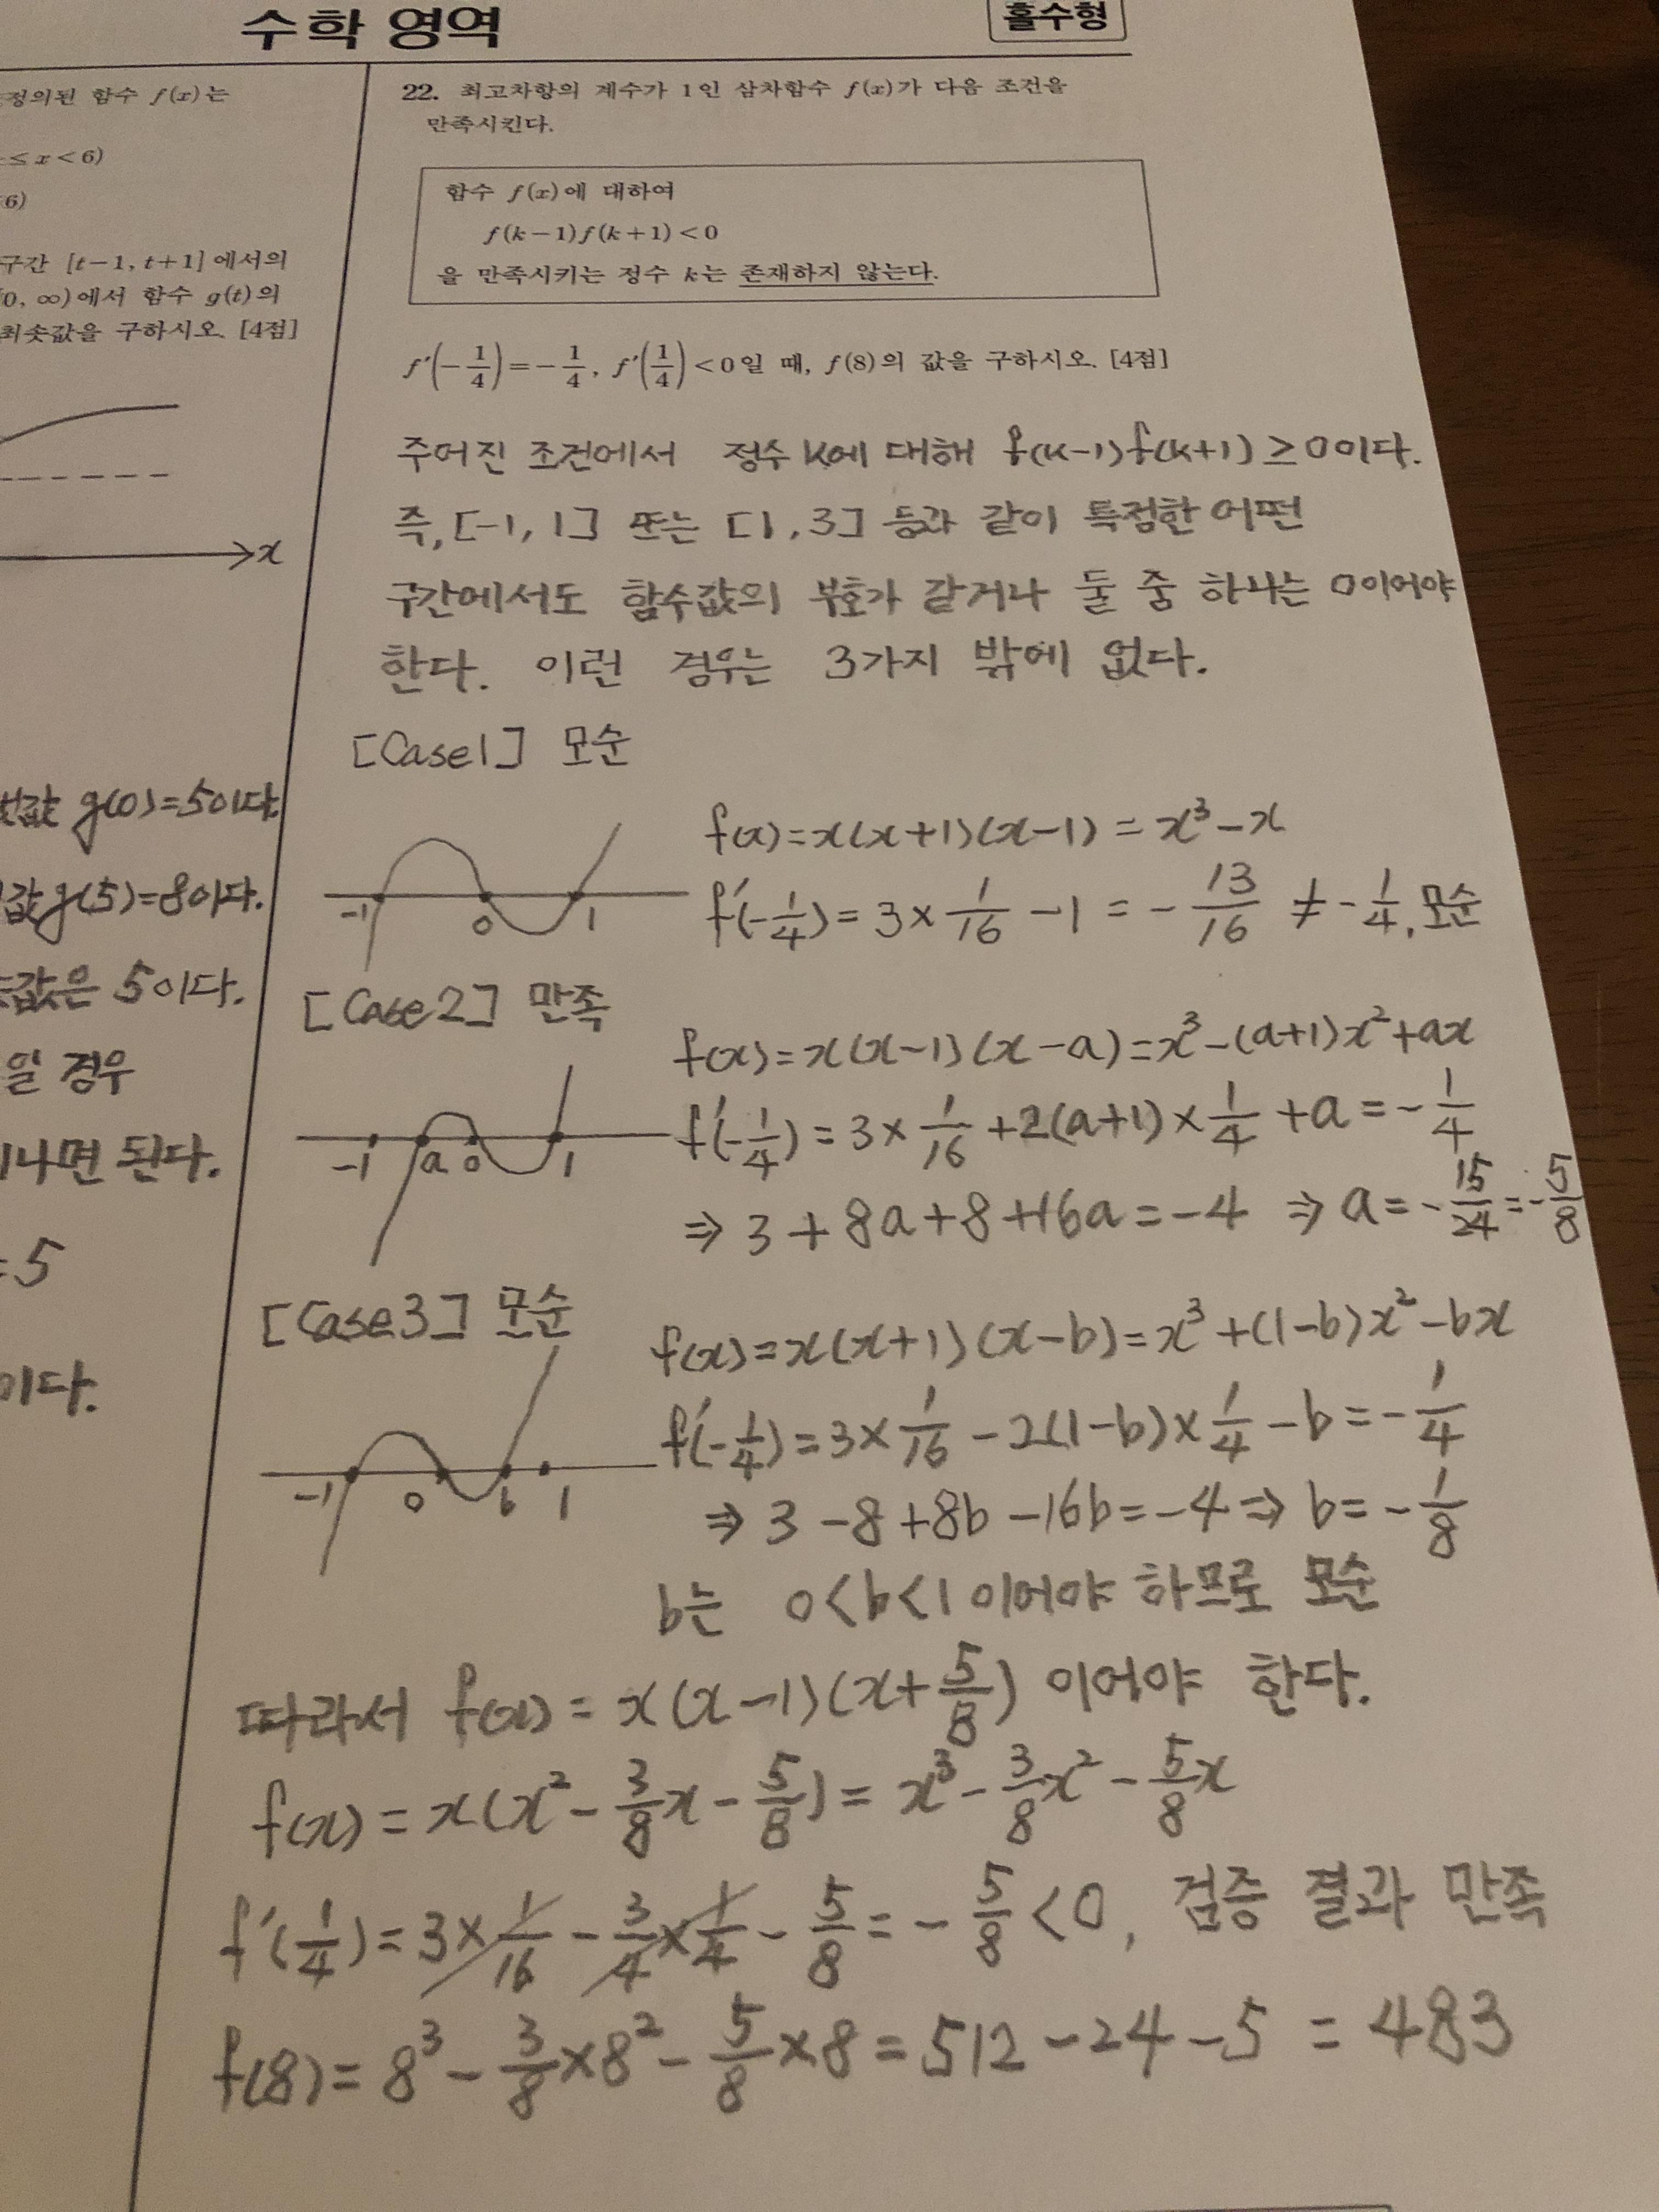 수학 영역
홀수형
정의된 함수 f(x)는
≤ x < 6)
6)
구간 [t−1, t+1]에서의
0, ∞)에서 함수 g(t)의
최솟값을 구하시오. [4점]
x
값 g(0)=5이다.
값 g(5)=8이다.
값은 5이다.
일 경우
나면 된다.
=5
이다.
22. 최고차항의 계수가 1인 삼차함수 f(x)가 다음 조건을
만족시킨다.
함수 f(x)에 대하여
f(k−1)f(k+1)<0
을 만족시키는 정수 k는 존재하지 않는다.
f'(−1/4)=−1/4, f'(1/4)<0일 때, f(8)의 값을 구하시오. [4점]
주어진 조건에서 정수 k에 대해 f(k-1)f(k+1)≥0이다.
즉, [-1, 1] 또는 [1, 3] 등과 같이 특정한 어떤
구간에서도 함수값의 부호가 같거나 둘 중 하나는 0이어야
한다. 이런 경우는 3가지 밖에 없다.
[Case1] 모순
-1 0 1
f(x)=x(x+1)(x-1)=x³-x
f'(-1/4)=3×1/16-1=-13/16≠-1/4, 모순
[Case2] 만족
-1 a 0 1
f(x)=x(x-1)(x-a)=x³-(a+1)x²+ax
f'(-1/4)=3×1/16+2(a+1)×1/4+a=-1/4
⇒ 3+8a+8+16a=-4 ⇒ a=-15/24=-5/8
[Case3] 모순
-1 0 b 1
f(x)=x(x+1)(x-b)=x³+(1-b)x²-bx
f'(-1/4)=3×1/16-2(1-b)×1/4-b=-1/4
⇒ 3-8+8b-16b=-4 ⇒ b=-1/8
b는 0<b<1이어야 하므로 모순
따라서 f(x)=x(x-1)(x+5/8) 이어야 한다.
f(x)=x(x²-3/8x-5/8)=x³-3/8x²-5/8x
f'(1/4)=3×1/16-3/4×1/4-5/8=-5/8<0, 검증 결과 만족
f(8)=8³-3/8×8²-5/8×8=512-24-5=483